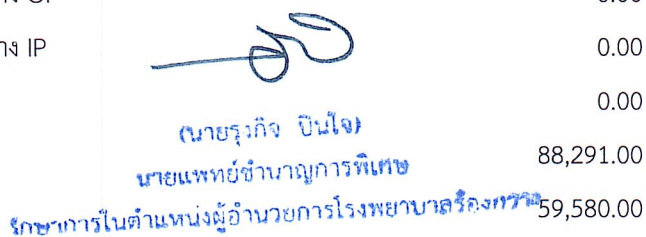 0.00
าง IP 0.00
0.00
(นายรุ่งกิจ ปินใจ)
นายแพทย์ชำนาญการพิเศษ 88,291.00
รักษาการในตำแหน่งผู้อำนวยการโรงพยาบาลร้องกวาง 59,580.00